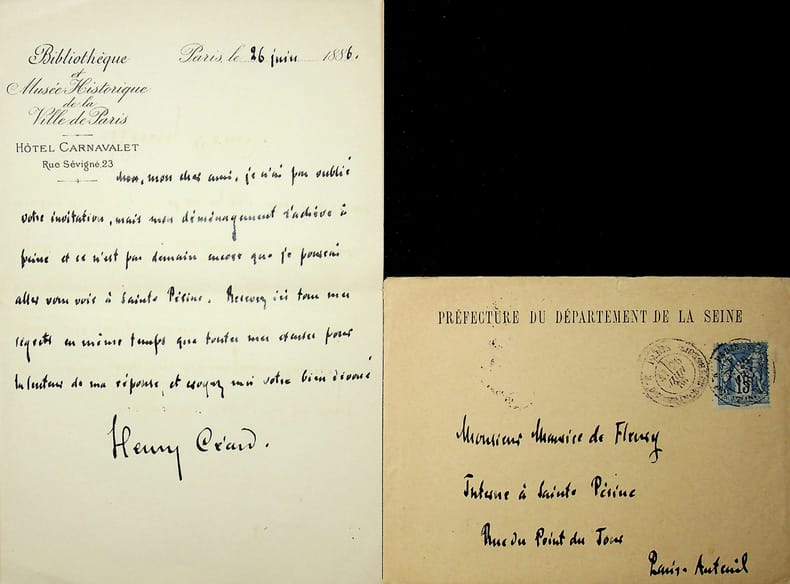 Bibliothèque
et
Musée Historique
de la
Ville de Paris
HÔTEL CARNAVALET
Rue Sévigné, 23
Paris, le 26 juin 1886.
non, mon cher ami, je n'ai pas oublié
votre invitation, mais mon déménagement s'achève à
peine et ce n'est pas demain encore que je pourrai
aller vous voir à Sainte Périne. Recevez ici tous mes
regrets en même temps que toutes mes excuses pour
la lenteur de ma réponse, et croyez moi votre bien dévoué
Henry Céard.
PRÉFECTURE DU DÉPARTEMENT DE LA SEINE
PARIS
15
Monsieur Maurice de Fleury
Interne à Sainte Périne
Rue du Point du Jour
Paris-Auteuil